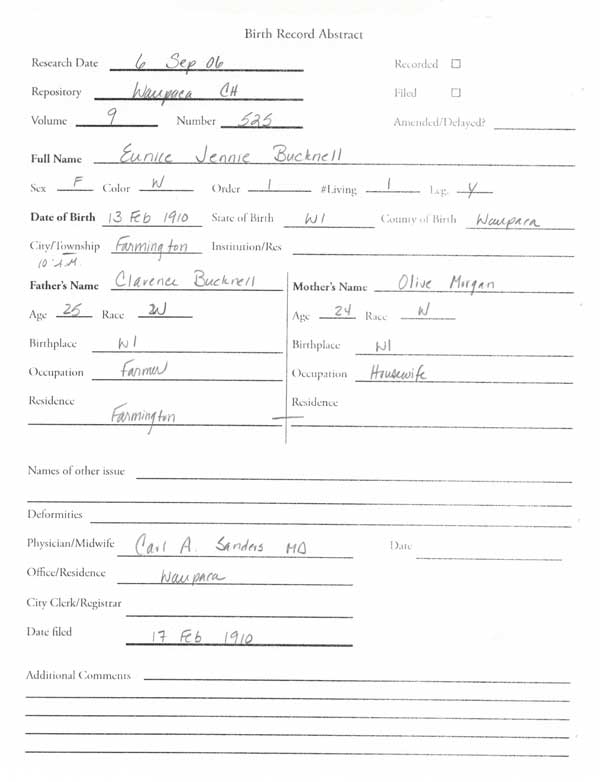 Birth Record Abstract
Research Date 6 Sep 06 Recorded ☐
Repository Waupaca CH Filed ☐
Volume 9 Number 525 Amended/Delayed?
Full Name Eunice Jennie Bucknell
Sex F Color W Order 1 #Living 1 Leg. Y
Date of Birth 13 Feb 1910 State of Birth WI County of Birth Waupaca
City/Township Farmington Institution/Res
10 A.M.
Father's Name Clarence Bucknell Mother's Name Olive Morgan
Age 25 Race W Age 24 Race W
Birthplace WI Birthplace WI
Occupation Farmer Occupation Housewife
Residence Residence
Farmington —
Names of other issue
Deformities
Physician/Midwife Carl A. Sanders MD Date
Office/Residence Waupaca
City Clerk/Registrar
Date filed 17 Feb 1910
Additional Comments